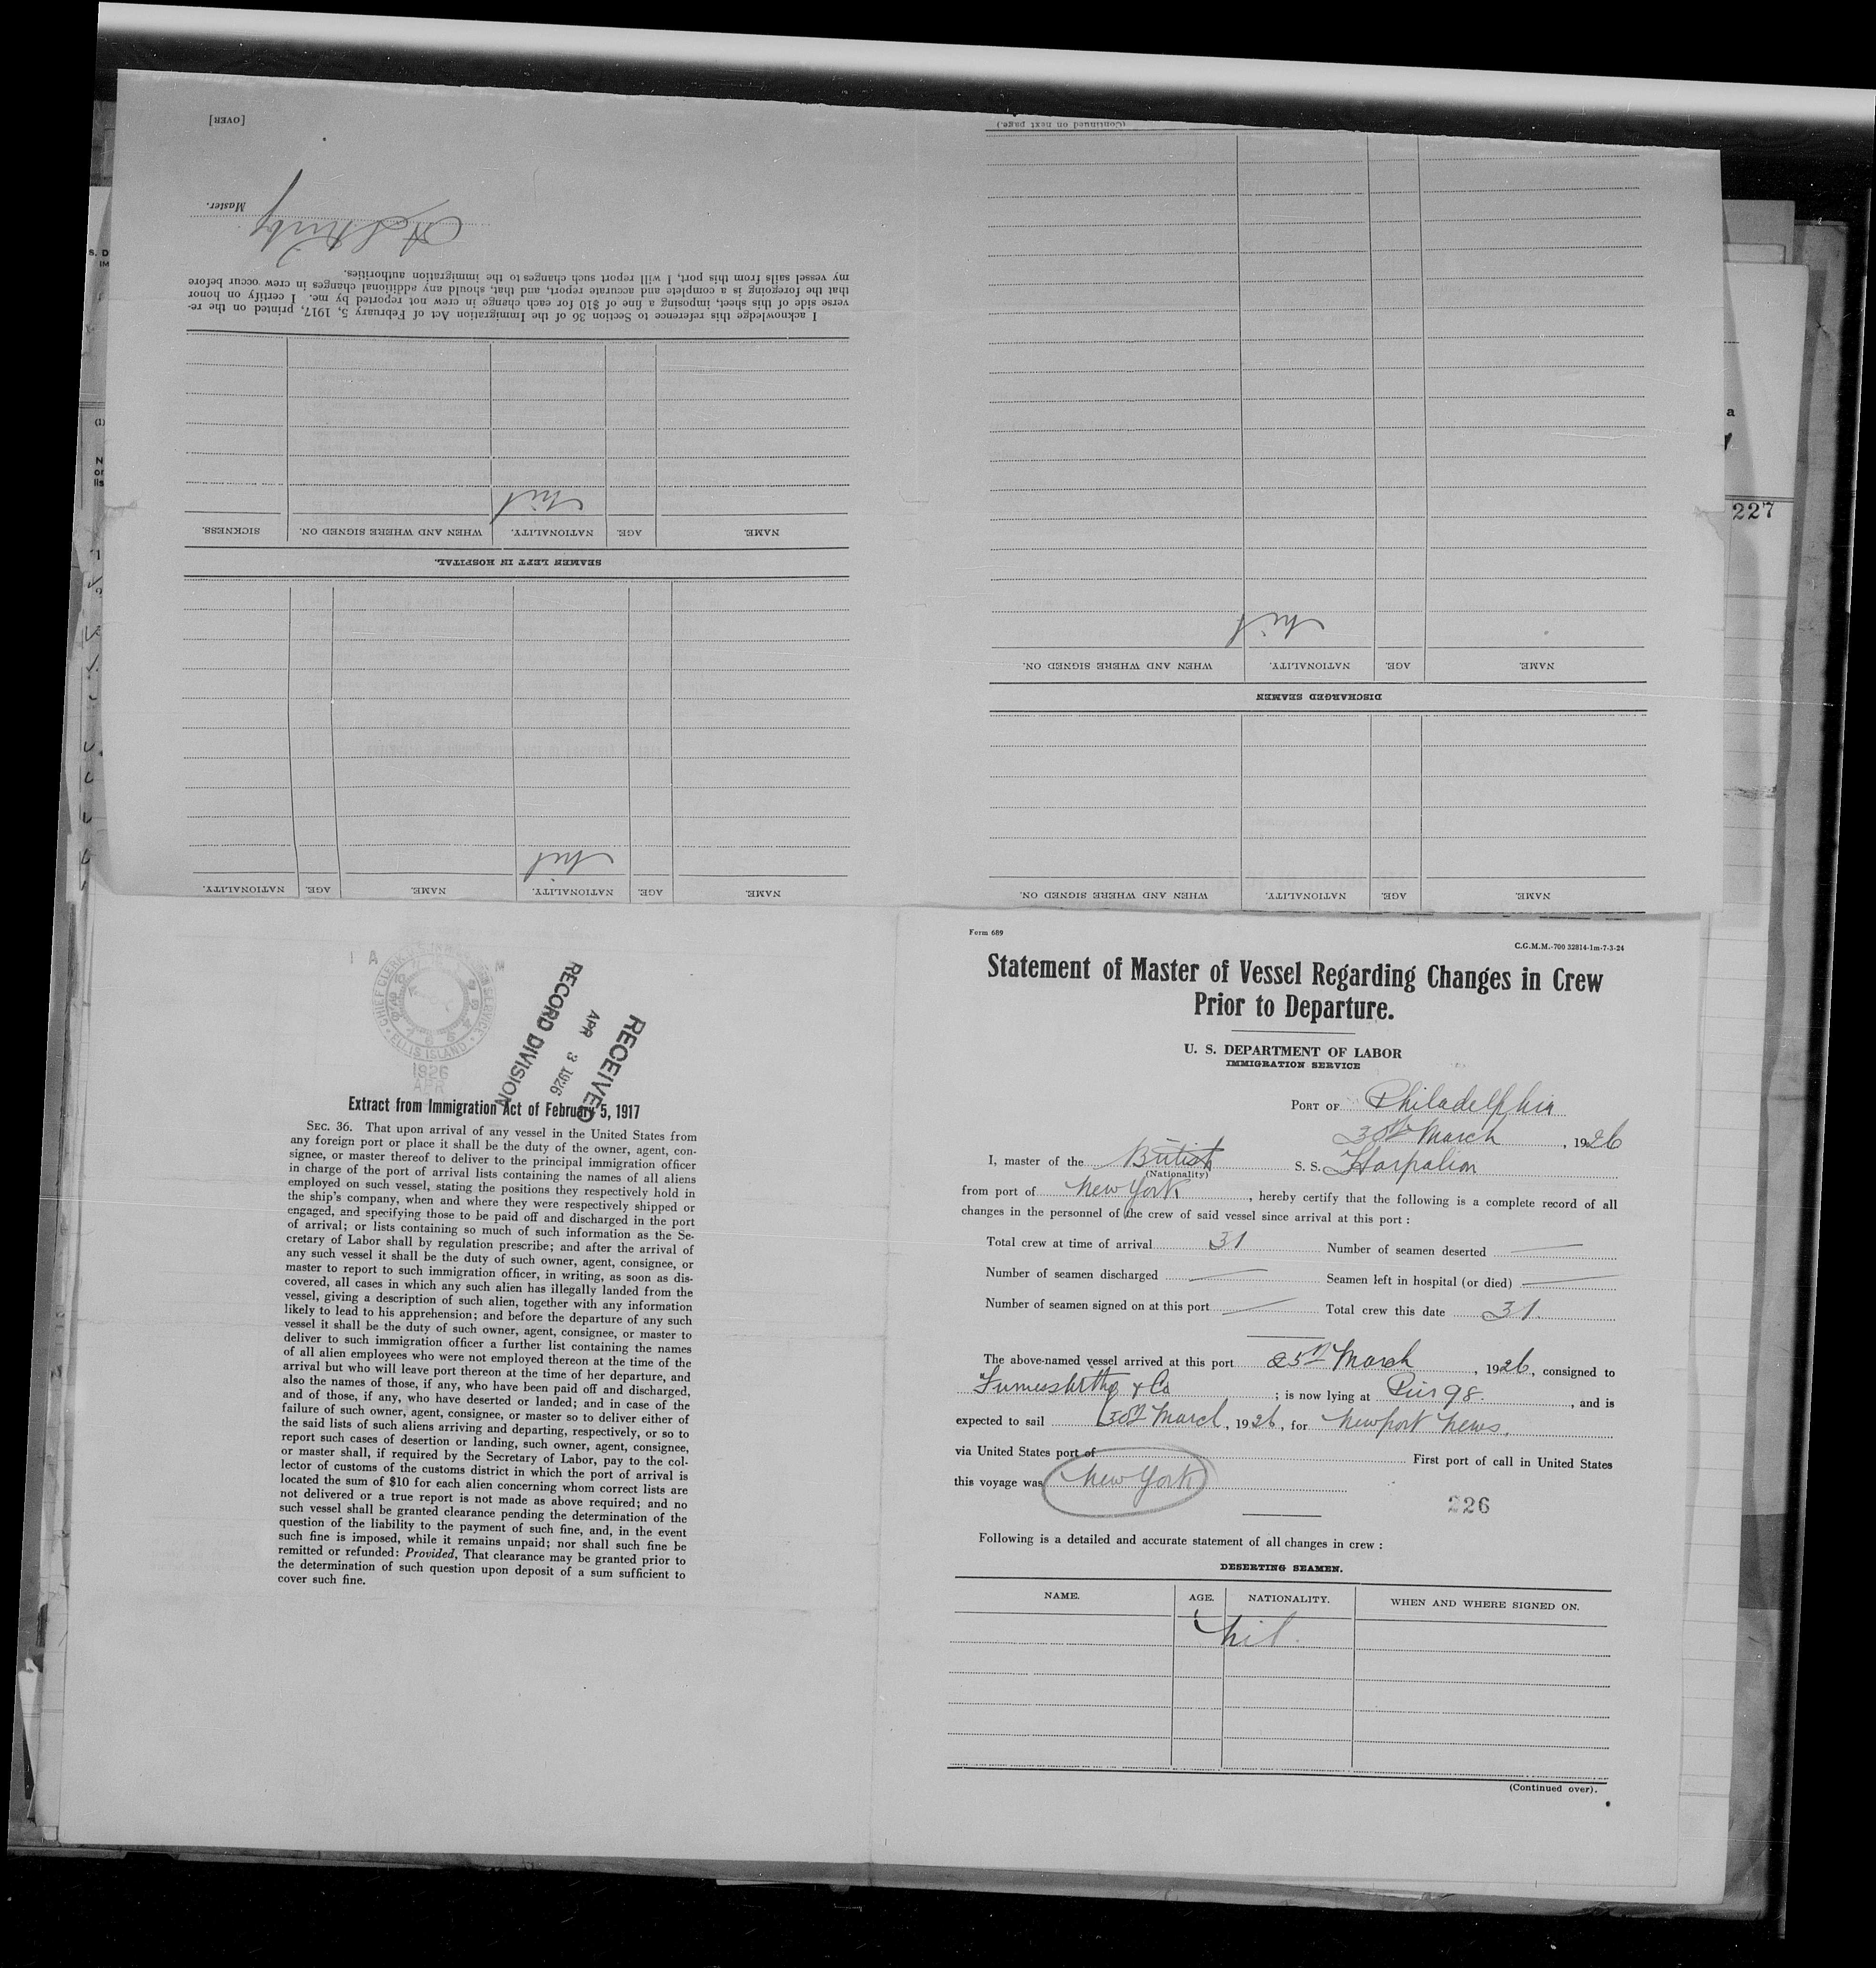 Form 689
C.G.M.M.-700 32814-1m-7-3-24
Statement of Master of Vessel Regarding Changes in Crew
Prior to Departure.
U. S. DEPARTMENT OF LABOR
IMMIGRATION SERVICE
PORT OF Philadelphia
30th March, 1926
I, master of the British S. S. Harpalion
(Nationality)
from port of New York, hereby certify that the following is a complete record of all
changes in the personnel of the crew of said vessel since arrival at this port :
Total crew at time of arrival 31 Number of seamen deserted —
Number of seamen discharged — Seamen left in hospital (or died) —
Number of seamen signed on at this port — Total crew this date 31.
The above-named vessel arrived at this port 25th March, 1926, consigned to
Furness Withy & Co ; is now lying at Pier 98., and is
expected to sail 30th March, 1926, for Newport News.
via United States port of First port of call in United States
this voyage was New York
226
Following is a detailed and accurate statement of all changes in crew :
DESERTING SEAMEN.
NAME. AGE. NATIONALITY. WHEN AND WHERE SIGNED ON.
nil.
(Continued over).
NAME. AGE. NATIONALITY. WHEN AND WHERE SIGNED ON.
DISCHARGED SEAMEN
NAME. AGE. NATIONALITY. WHEN AND WHERE SIGNED ON.
nil
(Continued on next page.)
NAME. AGE. NATIONALITY. NAME. AGE. NATIONALITY.
nil
SEAMEN LEFT IN HOSPITAL.
NAME. AGE. NATIONALITY. WHEN AND WHERE SIGNED ON. SICKNESS.
nil
I acknowledge this reference to Section 36 of the Immigration Act of February 5, 1917, printed on the re-
verse side of this sheet, imposing a fine of $10 for each change in crew not reported by me. I certify on honor
that the foregoing is a complete and accurate report, and that, should any additional changes in crew occur before
my vessel sails from this port, I will report such changes to the immigration authorities.
Master.
[OVER]
RECEIVED
APR 3 1926
RECORD DIVISION
ELLIS ISLAND
1926
APR
Extract from Immigration Act of February 5, 1917
SEC. 36. That upon arrival of any vessel in the United States from
any foreign port or place it shall be the duty of the owner, agent, con-
signee, or master thereof to deliver to the principal immigration officer
in charge of the port of arrival lists containing the names of all aliens
employed on such vessel, stating the positions they respectively hold in
the ship's company, when and where they were respectively shipped or
engaged, and specifying those to be paid off and discharged in the port
of arrival; or lists containing so much of such information as the Se-
cretary of Labor shall by regulation prescribe; and after the arrival of
any such vessel it shall be the duty of such owner, agent, consignee, or
master to report to such immigration officer, in writing, as soon as dis-
covered, all cases in which any such alien has illegally landed from the
vessel, giving a description of such alien, together with any information
likely to lead to his apprehension; and before the departure of any such
vessel it shall be the duty of such owner, agent, consignee, or master to
deliver to such immigration officer a further list containing the names
of all alien employees who were not employed thereon at the time of the
arrival but who will leave port thereon at the time of her departure, and
also the names of those, if any, who have been paid off and discharged,
and of those, if any, who have deserted or landed; and in case of the
failure of such owner, agent, consignee, or master so to deliver either of
the said lists of such aliens arriving and departing, respectively, or so to
report such cases of desertion or landing, such owner, agent, consignee,
or master shall, if required by the Secretary of Labor, pay to the col-
lector of customs of the customs district in which the port of arrival is
located the sum of $10 for each alien concerning whom correct lists are
not delivered or a true report is not made as above required; and no
such vessel shall be granted clearance pending the determination of the
question of the liability to the payment of such fine, and, in the event
such fine is imposed, while it remains unpaid; nor shall such fine be
remitted or refunded: Provided, That clearance may be granted prior to
the determination of such question upon deposit of a sum sufficient to
cover such fine.
227